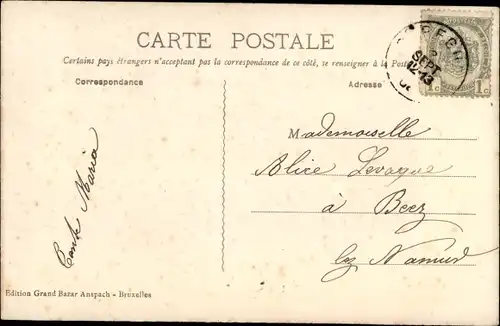 CARTE POSTALE
Certains pays étrangers n'acceptant pas la correspondance de ce côté, se renseigner à la Poste
Correspondance
Adresse
SEPT
12-13
1c
1c
Mademoiselle
Alice Levaque
à Beez
lez Namur
Tante Maria
Edition Grand Bazar Anspach - Bruxelles